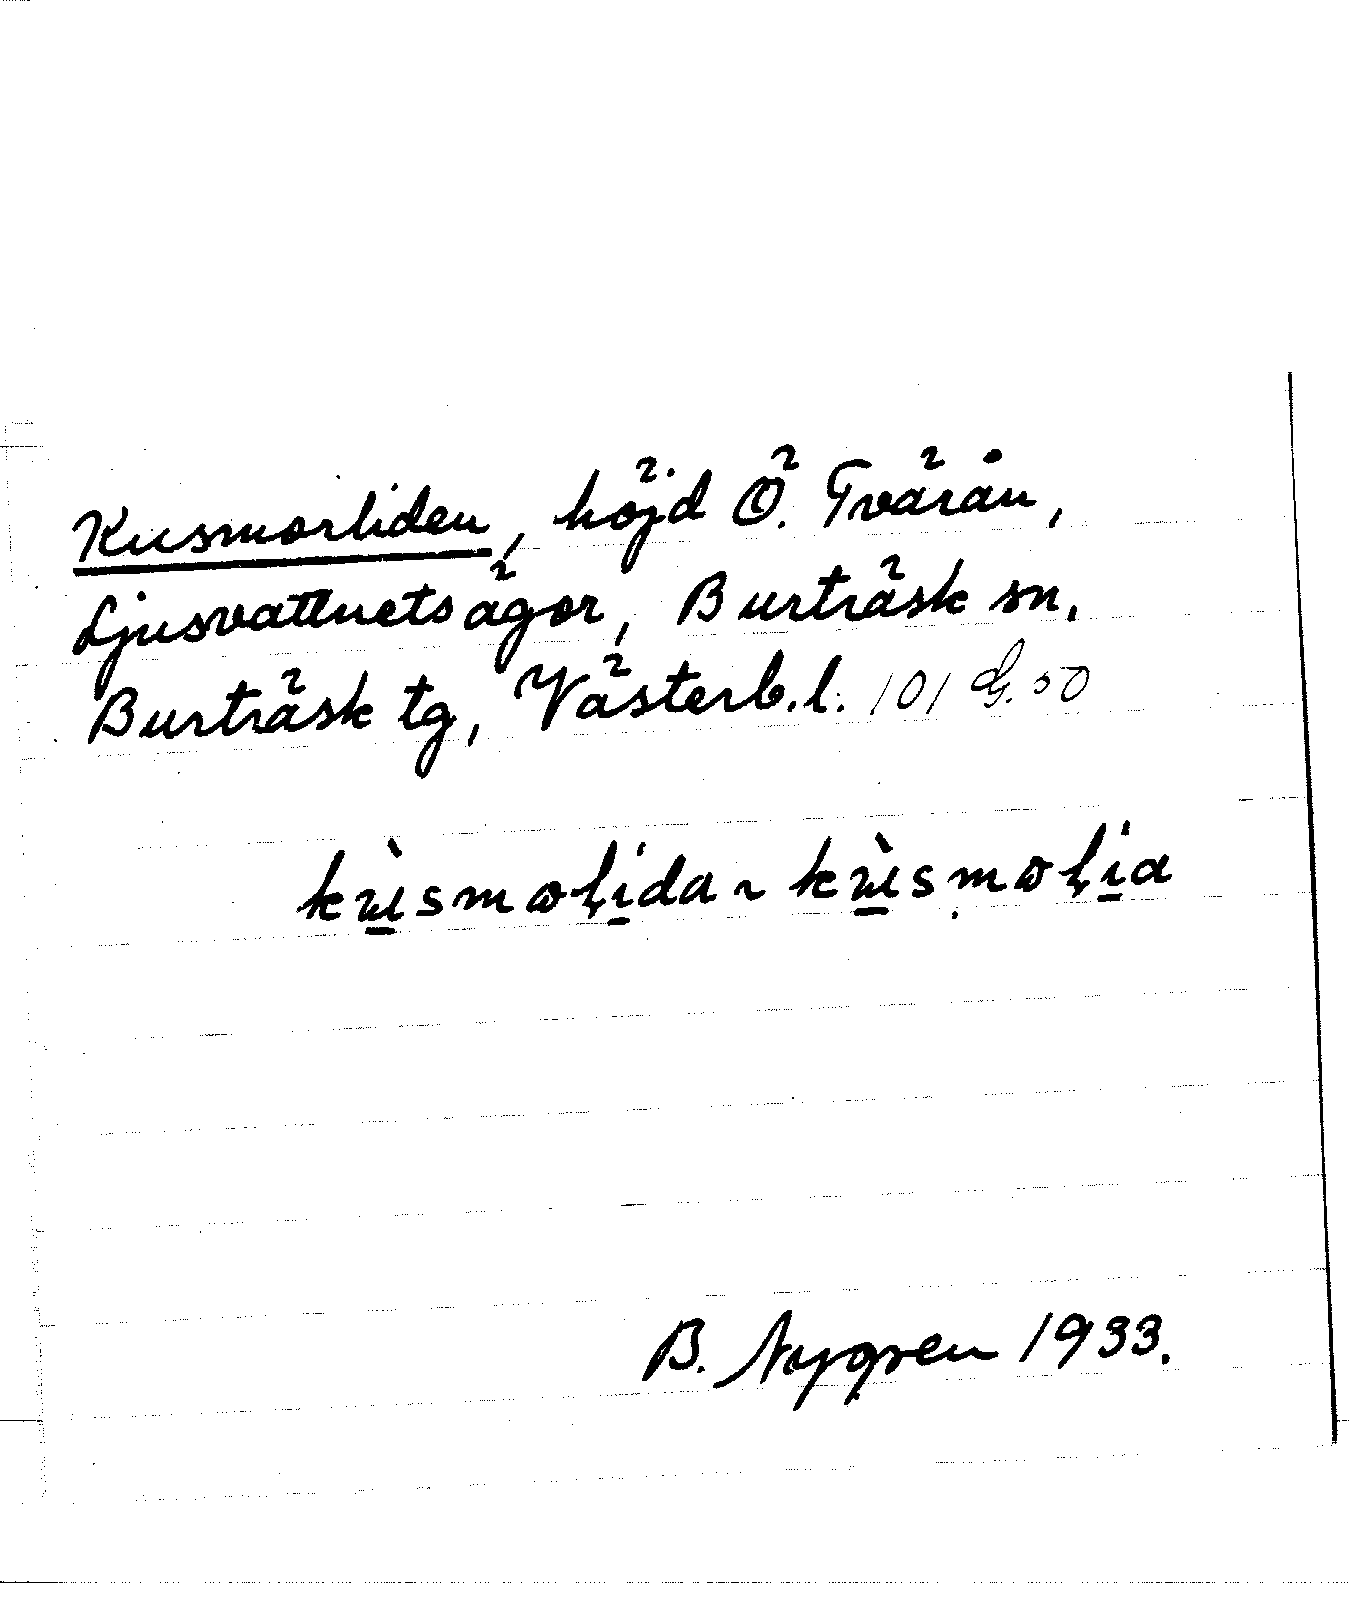 Kusmorliden, höjd Ö. Tvärån,
Ljusvattnets ägor, Burträsk sn,
Burträsk tg, Västerb. l. 101
B. Nygren 1933.